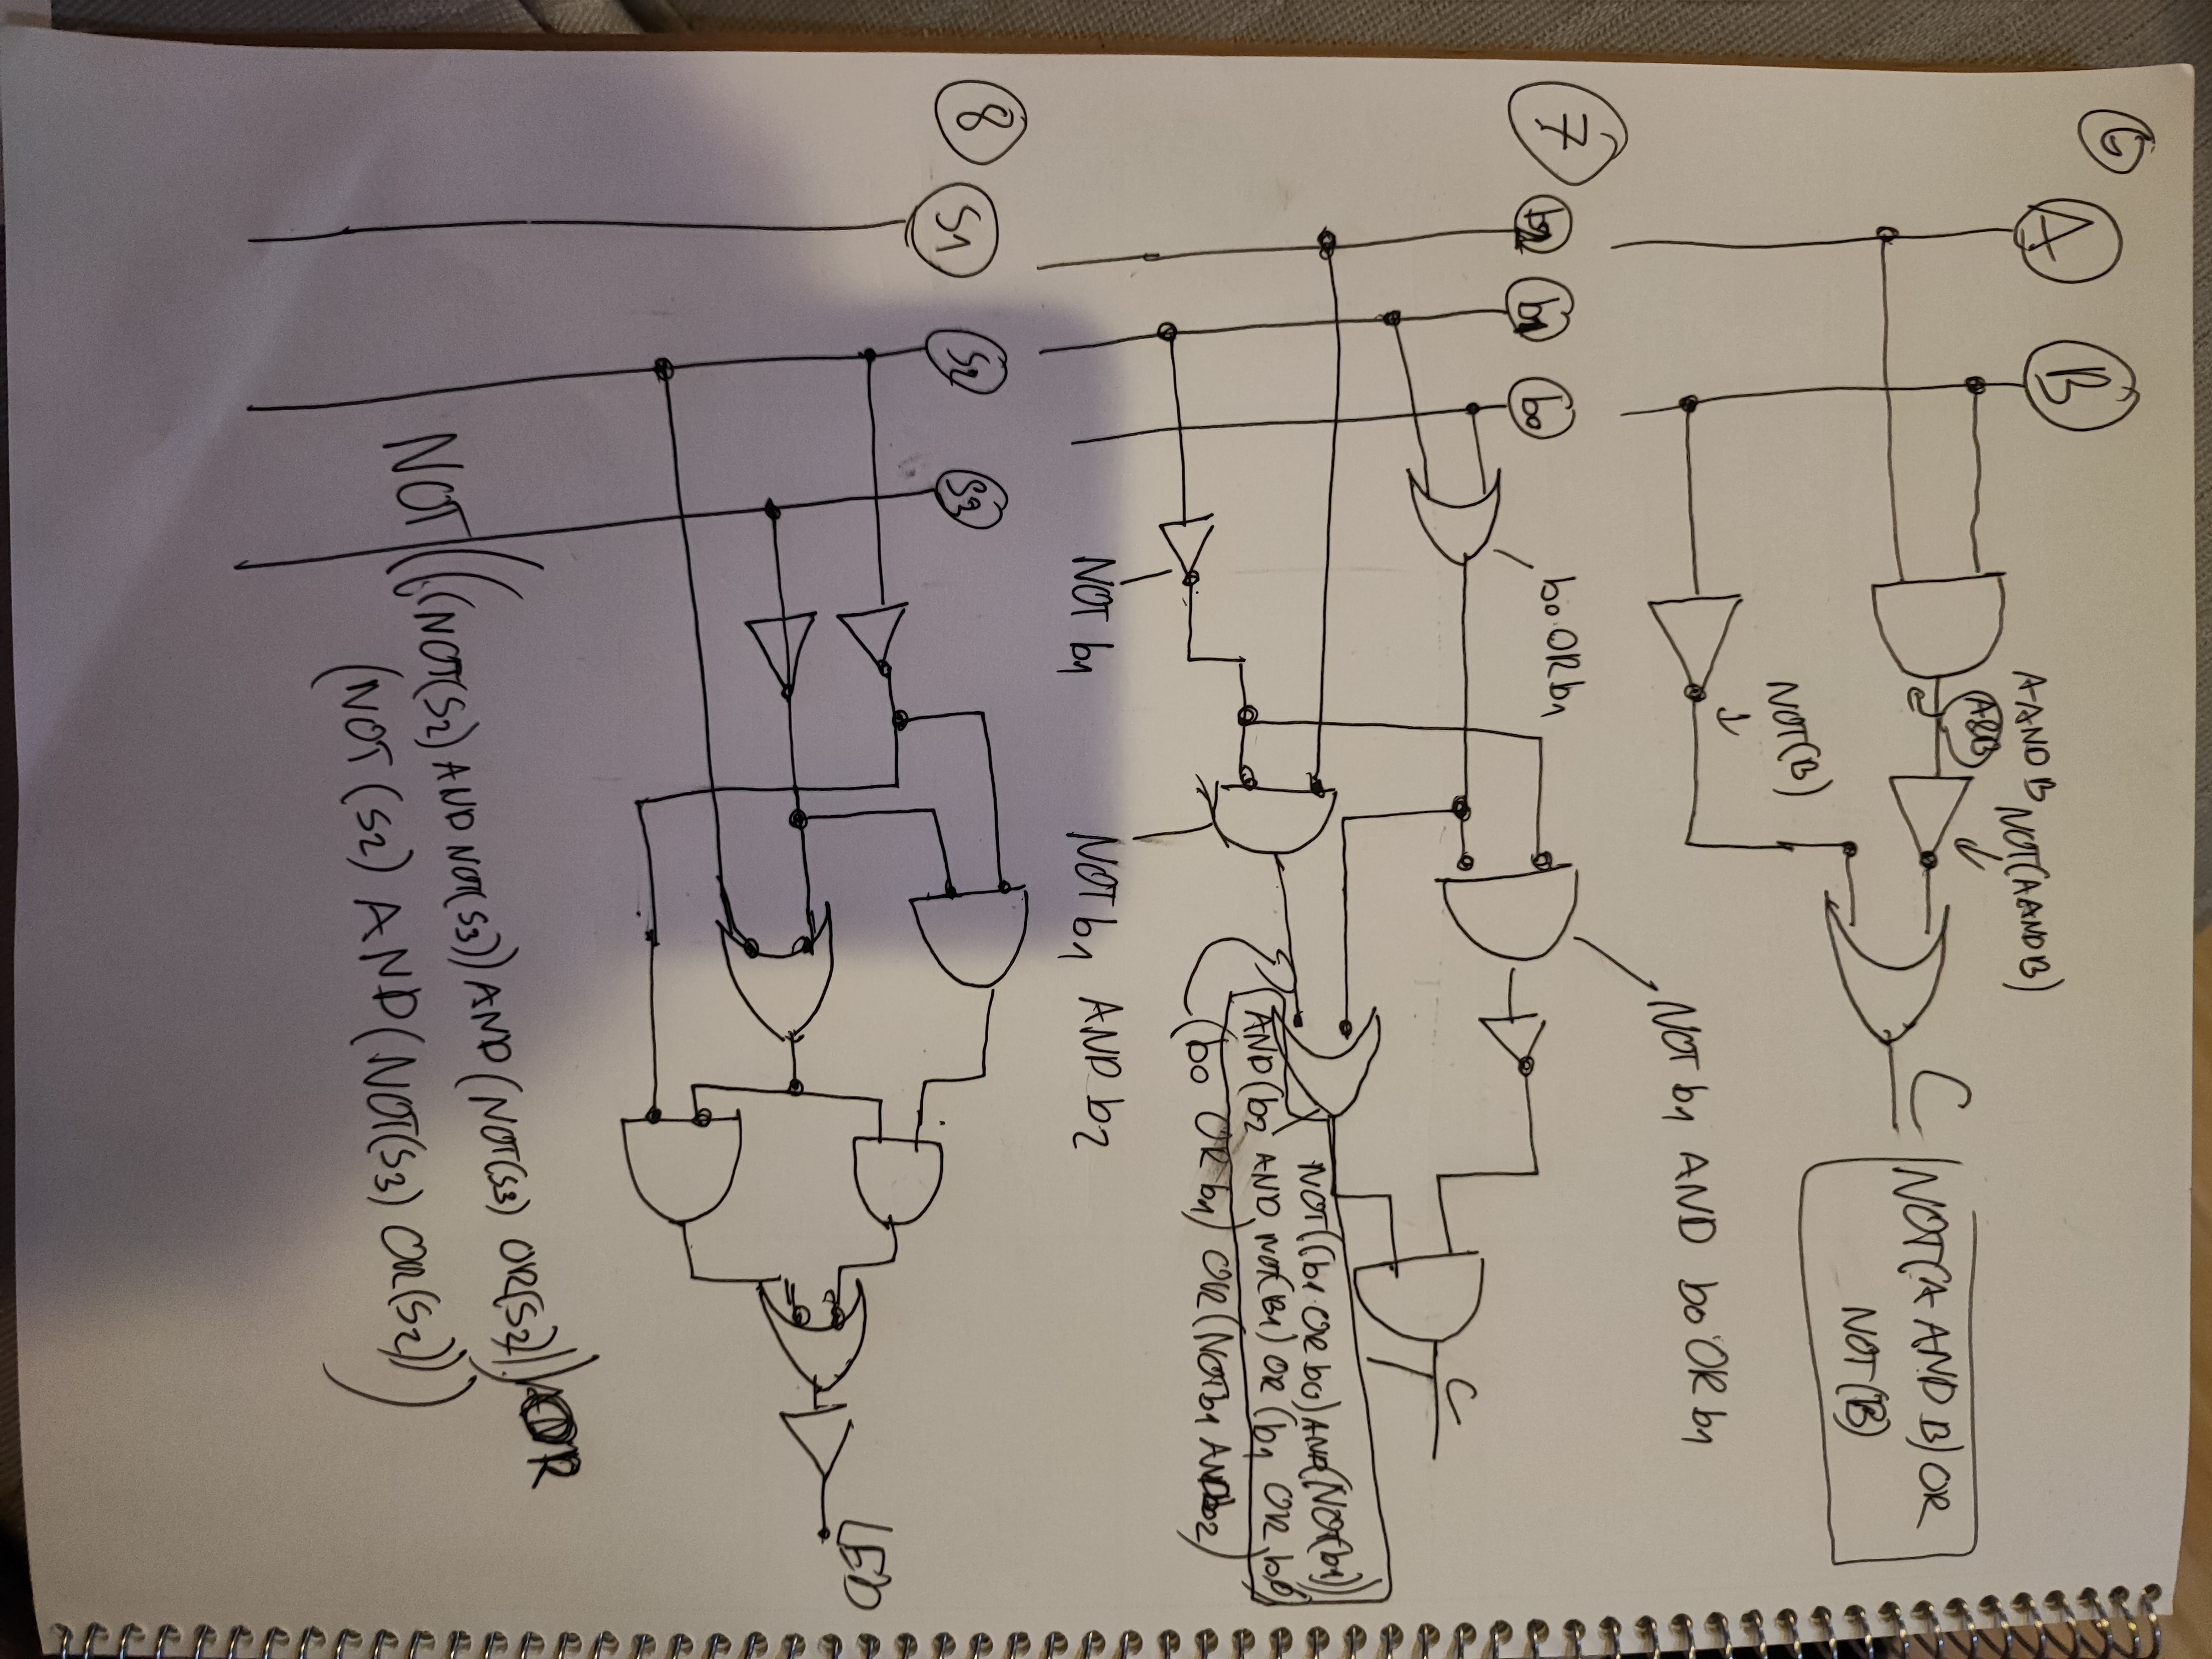 6
A
B
A AND B
A&B
NOT(A AND B)
NOT(B)
C
NOT(A AND B) OR
NOT(B)
7
b2
b1
b0
b0 OR b1
NOT b1
NOT b1 AND b0 OR b1
NOT b1 AND b2
C
NOT((b1 OR b0) AND (NOT(b1))
AND (b2 AND NOT(B1) OR (b1 OR b0)
(b0 OR b1) OR (NOT b1 AND b2)
8
S1
S2
S3
LED
OR
NOT (((NOT(S2) AND NOT(S3)) AND (NOT(S3) OR(S2)))
(NOT (S2) AND (NOT(S3) OR(S2))